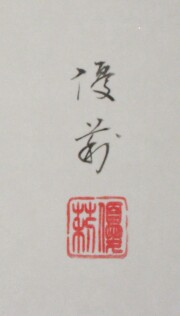 優莉
優莉